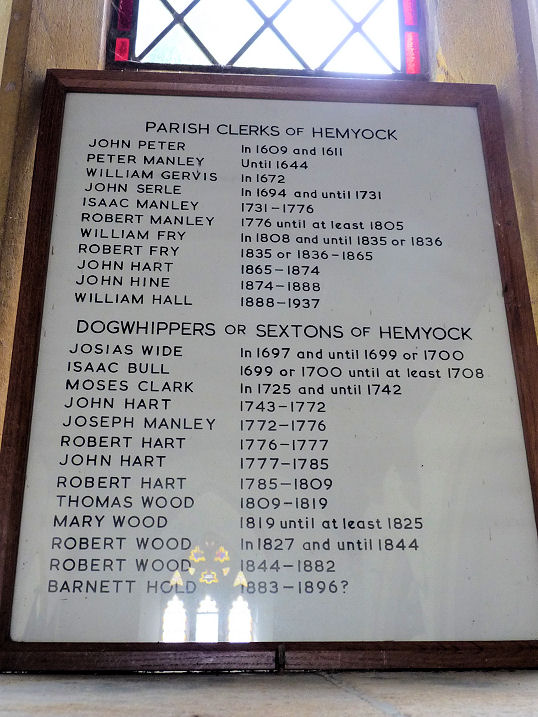 PARISH CLERKS OF HEMYOCK
JOHN PETER In 1609 and 1611
PETER MANLEY Until 1644
WILLIAM GERVIS In 1672
JOHN SERLE In 1694 and until 1731
ISAAC MANLEY 1731-1776
ROBERT MANLEY 1776 until at least 1805
WILLIAM FRY In 1808 and until 1835 or 1836
ROBERT FRY 1835 or 1836-1865
JOHN HART 1865-1874
JOHN HINE 1874-1888
WILLIAM HALL 1888-1937
DOGWHIPPERS OR SEXTONS OF HEMYOCK
JOSIAS WIDE In 1697 and until 1699 or 1700
ISAAC BULL 1699 or 1700 until at least 1708
MOSES CLARK In 1725 and until 1742
JOHN HART 1743-1772
JOSEPH MANLEY 1772-1776
ROBERT HART 1776-1777
JOHN HART 1777-1785
ROBERT HART 1785-1809
THOMAS WOOD 1809-1819
MARY WOOD 1819 until at least 1825
ROBERT WOOD In 1827 and until 1844
ROBERT WOOD 1844-1882
BARNETT HOLD 1883-1896?